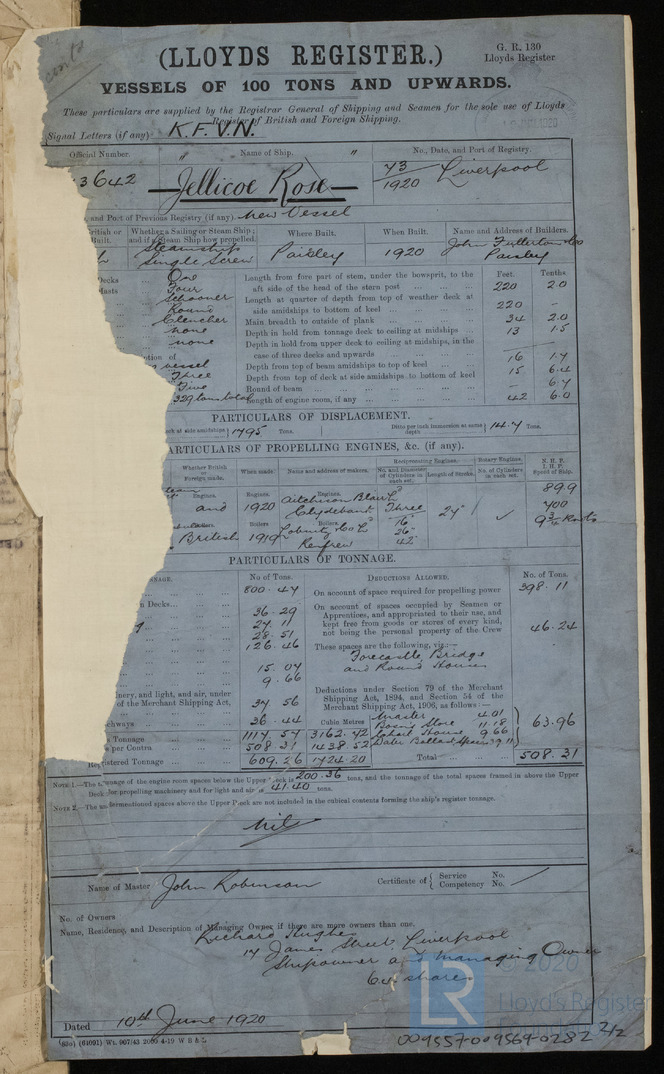 (LLOYDS REGISTER.)
G. R. 130
Lloyds Register
VESSELS OF 100 TONS AND UPWARDS.
These particulars are supplied by the Registrar General of Shipping and Seamen for the sole use of Lloyds
Register of British and Foreign Shipping.
Signal Letters (if any) K.F.V.N.
Official Number. Name of Ship. No., Date, and Port of Registry.
3642 Jellicoe Rose 73/1920 Liverpool
and Port of Previous Registry (if any). New Vessel
British or Built. Whether a Sailing or Steam Ship; and if a Steam Ship how propelled. Where Built. When Built. Name and Address of Builders.
Steamship Single Screw Paisley 1920 John Fullerton & Co Paisley
Decks One
Masts Four
Schooner
Round
Clencher
none
none
vessel
Three
Five
329 tons total
Feet. Tenths.
Length from fore part of stem, under the bowsprit, to the
aft side of the head of the stern post 220 2.0
Length at quarter of depth from top of weather deck at
side amidships to bottom of keel 220 -
Main breadth to outside of plank 34 2.0
Depth in hold from tonnage deck to ceiling at midships 13 1.5
Depth in hold from upper deck to ceiling at midships, in the
case of three decks and upwards
Depth from top of beam amidships to top of keel 16 1.7
Depth from top of deck at side amidships to bottom of keel 15 6.4
Round of beam - 6.7
Length of engine room, if any 42 6.0
PARTICULARS OF DISPLACEMENT.
deck at side amidships 1795 Tons. Ditto per inch immersion at same depth 14.7 Tons.
PARTICULARS OF PROPELLING ENGINES, &c. (if any).
Whether British or Foreign made. When made. Name and address of makers. Reciprocating Engines. No. and Diameter of Cylinders in each set. Length of Stroke. Rotary Engines. No. of Cylinders in each set. N.H.P. I.H.P. Speed of Ship.
Engines. Engines. Engines.
and 1920 Aitchison Blair Ld Clydebank Three 24" 899
700
9 3/4 Knots
Boilers. Boilers Boilers
British 1919 & Co Ld Renfrew 16" 26" 42"
PARTICULARS OF TONNAGE.
No of Tons. DEDUCTIONS ALLOWED. No. of Tons.
800.47 On account of space required for propelling power 398.11
On account of spaces occupied by Seamen or
36.29 Apprentices, and appropriated to their use, and
27.11 kept free from goods or stores of every kind,
28.51 not being the personal property of the Crew 46.24
126.46 These spaces are the following, viz.:—
Forecastle, Bridge
15.07 and Round Houses
9.66
Deductions under Section 79 of the Merchant
Shipping Act, 1894, and Section 54 of the
Merchant Shipping Act, 1906, as follows:—
and light, and air, under
of the Merchant Shipping Act, 37.56
36.44 Cubic Metres
Master 4.01
Bosns Store 11.18
Chart House 9.66
Water Ballast Space 39.11
63.96
Tonnage 1117.57 3162.72
per Contra 508.31 1438.52
Registered Tonnage 609.26 1724.20 Total 508.31
NOTE 1.—The tonnage of the engine room spaces below the Upper Deck is 200.36 tons, and the tonnage of the total spaces framed in above the Upper
Deck for propelling machinery and for light and air is 41.40 tons.
NOTE 2.—The undermentioned spaces above the Upper Deck are not included in the cubical contents forming the ship's register tonnage.
Nil
Name of Master John Robinson Certificate of { Service No. Competency No.
No. of Owners
Name, Residence, and Description of Managing Owner if there are more owners than one.
Richard Hughes
14 James Street Liverpool
Shipowner and Managing Owner
64 shares
Dated 10th June 1920
(636) (64091) Wt. 907/43 2000 4-19 W B & L
009557-009569-0282 2/2
© 2020
LR
Lloyd's Register